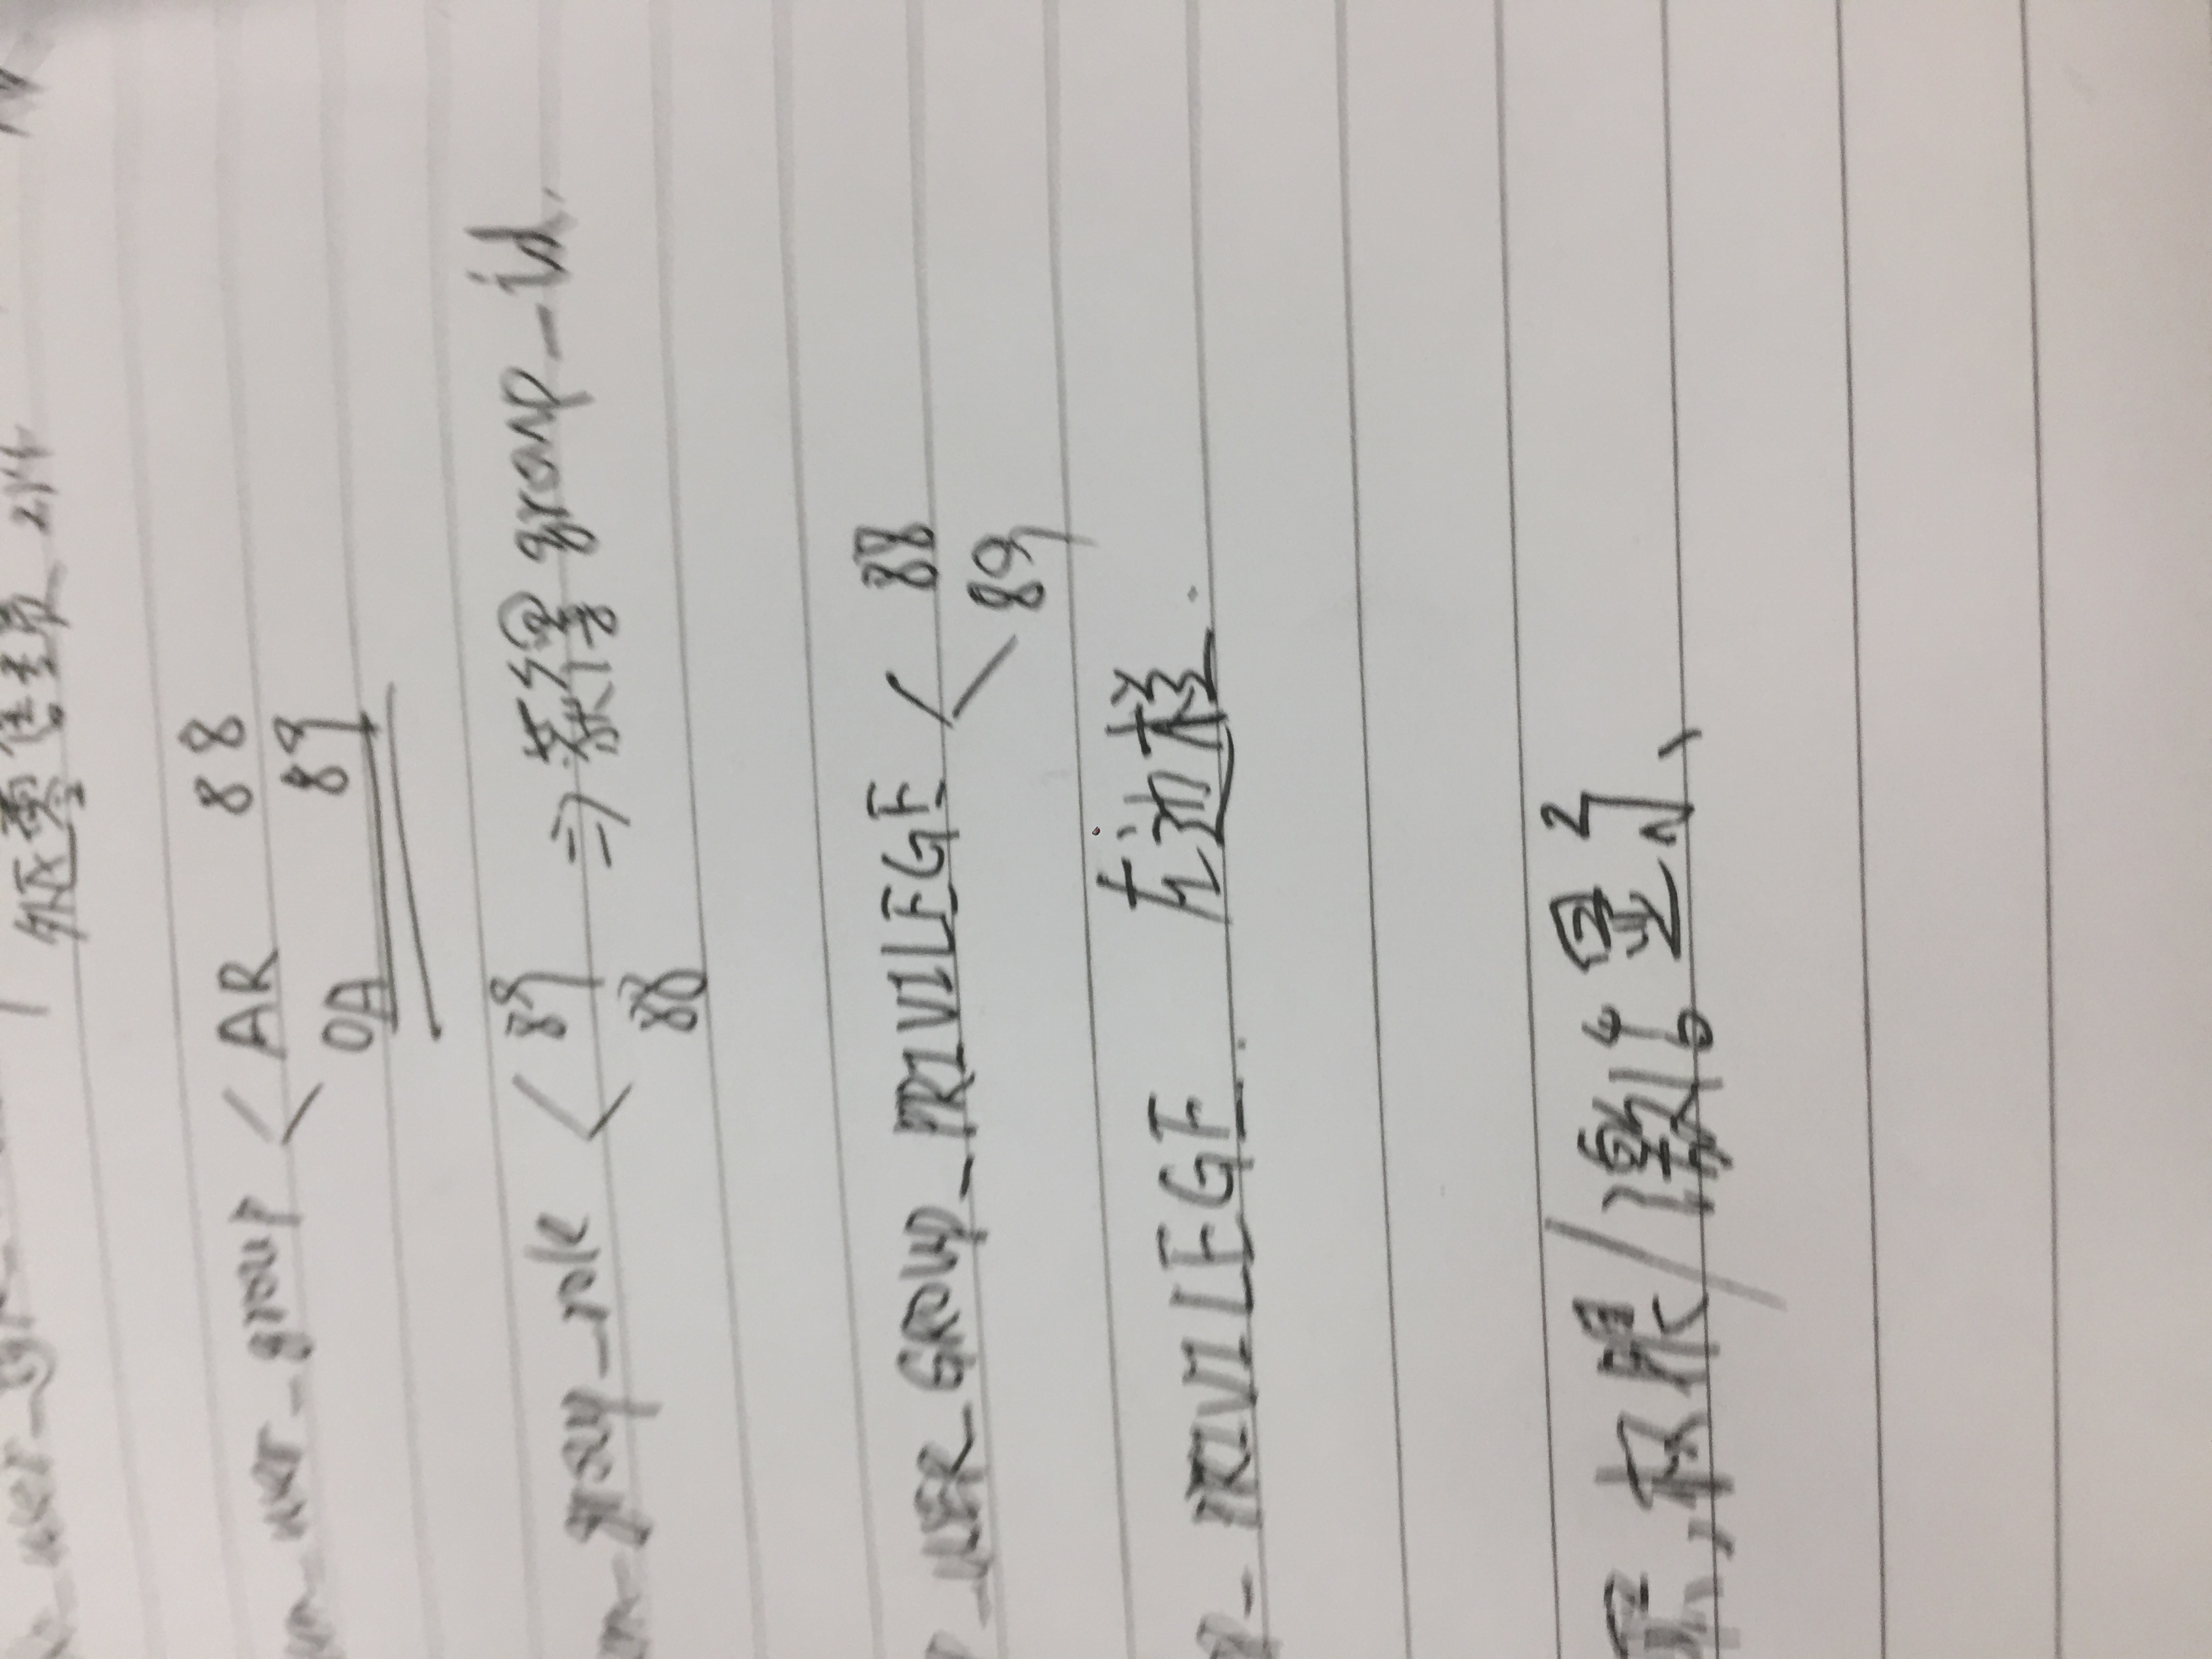 外区零售专员
_user_group < AR 88
OA 89
_group_role < 89 ⇒ 获得 group_id.
88
_USER_GROUP_PRIVILEGE < 88
89
_PRIVILEGE. 左边栏.
,权限/激活显示